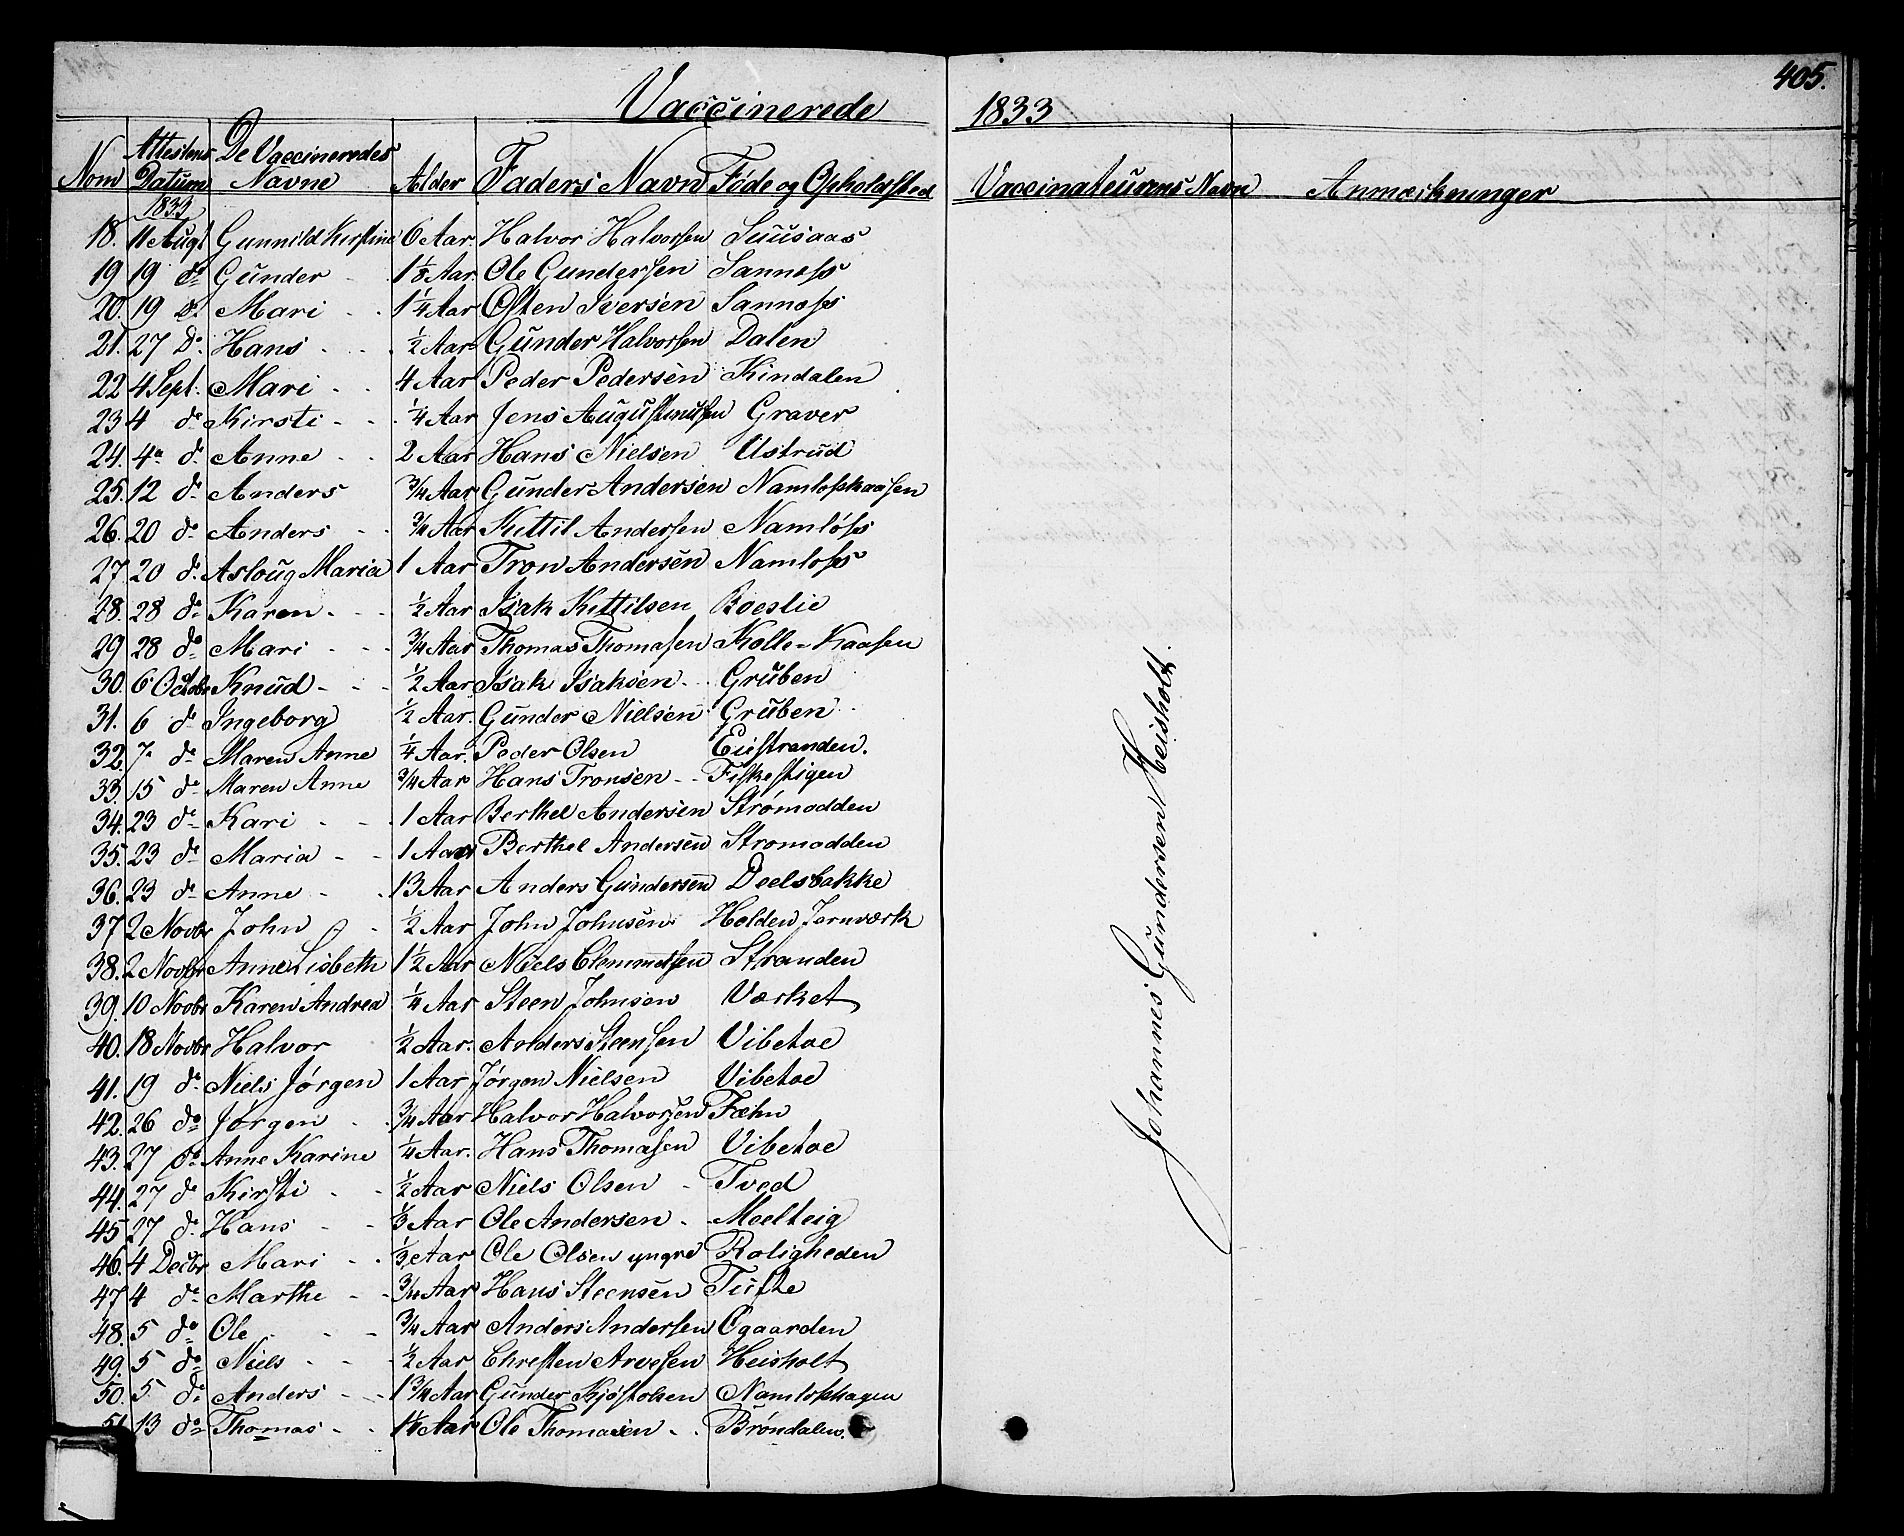 405.
Vaccinerede 1833
Nom Attestens Datum De Vaccineredes Navne Alder Faders Navn Föde og Opholdsted Vaccinateurens Navn Anmærkninger
1833
18. 11 Augt Gunnild Kirstine 6 Aar Halvor Halvorsen Suusaas
19 19 do Gunder - 1 1/8 Aar Ole Gundersen Sanness
20. 19 do Mari - - 1 1/4 Aar Osten Iversen Sanness
21. 27 Do Hans - - 1/2 Aar Gunder Halvorsen Dalen
22 4 Sept. Mari - - 4 Aar Peder Pedersen Kindalen
23 4 do Kirsti - - 1/4 Aar Jens Augustinussen Graver
24. 4 do Anne - - 2 Aar Hans Nielsen Ustrud
25. 12 do Anders 3/4 Aar Gunder Andersen Namlosskaasen
26. 20 do Anders - - 3/4 Aar Kittil Andersen Namløss
27 20 do Asloug Maria 1 Aar Tron Andersen Namloss
28. 28 do Karen - - - 1/2 Aar Isak Kittilsen Boeslie
29 28 do Mari - - - 3/4 Aar Thomas Thomasen Kolle-Kaasen
30. 6 Octobr Knud - - - 1/2 Aar Isak Isaksen - Gruben
31. 6 do Ingeborg 1/2 Aar. Gunder Nielsen Gruben
32. 7 do Maren Anne 1/4 Aar. Peder Olsen Eiestranden.
33. 15 do Maren Anne 3/4 Aar Hans Tronsen - - Fiskestigen
34. 23 do Kari - - 1 Aar Berthel Andersen Strømodden
35. 23 do Maria - - 1 Aar Berthel Andersen Stromodden
36. 23 do Anne - - 13 Aar Anders Gundersen Deelsbakke
37 2 Novbr John - 1/2 Aar John Johnsen Holden Jernværk
38. 2 Novbr Anne Lisbeth 1 1/2 Aar Niels Clemmetsen Stranden
39. 10 Novbr Karen Andrea 1/4 Aar Steen Johnsen Værket
40. 18 Novbr Halvor 1/2 Aar. Anders Steensen Vibetoe
41. 19 do Niels Jørgen 1 Aar Jørgen Nielsen Vibetoe
42. 26 do Jørgen - 3/4 Aar Halvor Halvorsen Fæhn
43. 27 do Anne Karine 1/4 Aar. Hans Thomasen Vibetoe
44. 27 do Kirsti - - 1/2 Aar Niels Olsen - Tved
45 27 do Hans - - 1/3 Aar Ole Andersen - Moelteig
46. 4 Decbr Mari - - 1/3 Aar Ole Olsen yngre Roligheden
47 4 do Marthe - - 3/4 Aar Hans Steensen Tufte
48. 5 do Ole - - - 3/4 Aar Anders Andersen Ogaarden
49. 5 do Niels - - - 1/2 Aar Chresten Arvesen Heisholt
50. 5 do Anders - - 1 3/4 Aar Gunder Kjøstolsen Namlosshagen
51. 13 do Thomas - - 1 1/4 Aar Ole Thomasen - - Brøndalen.
Johannes Gundersen Heisholt.